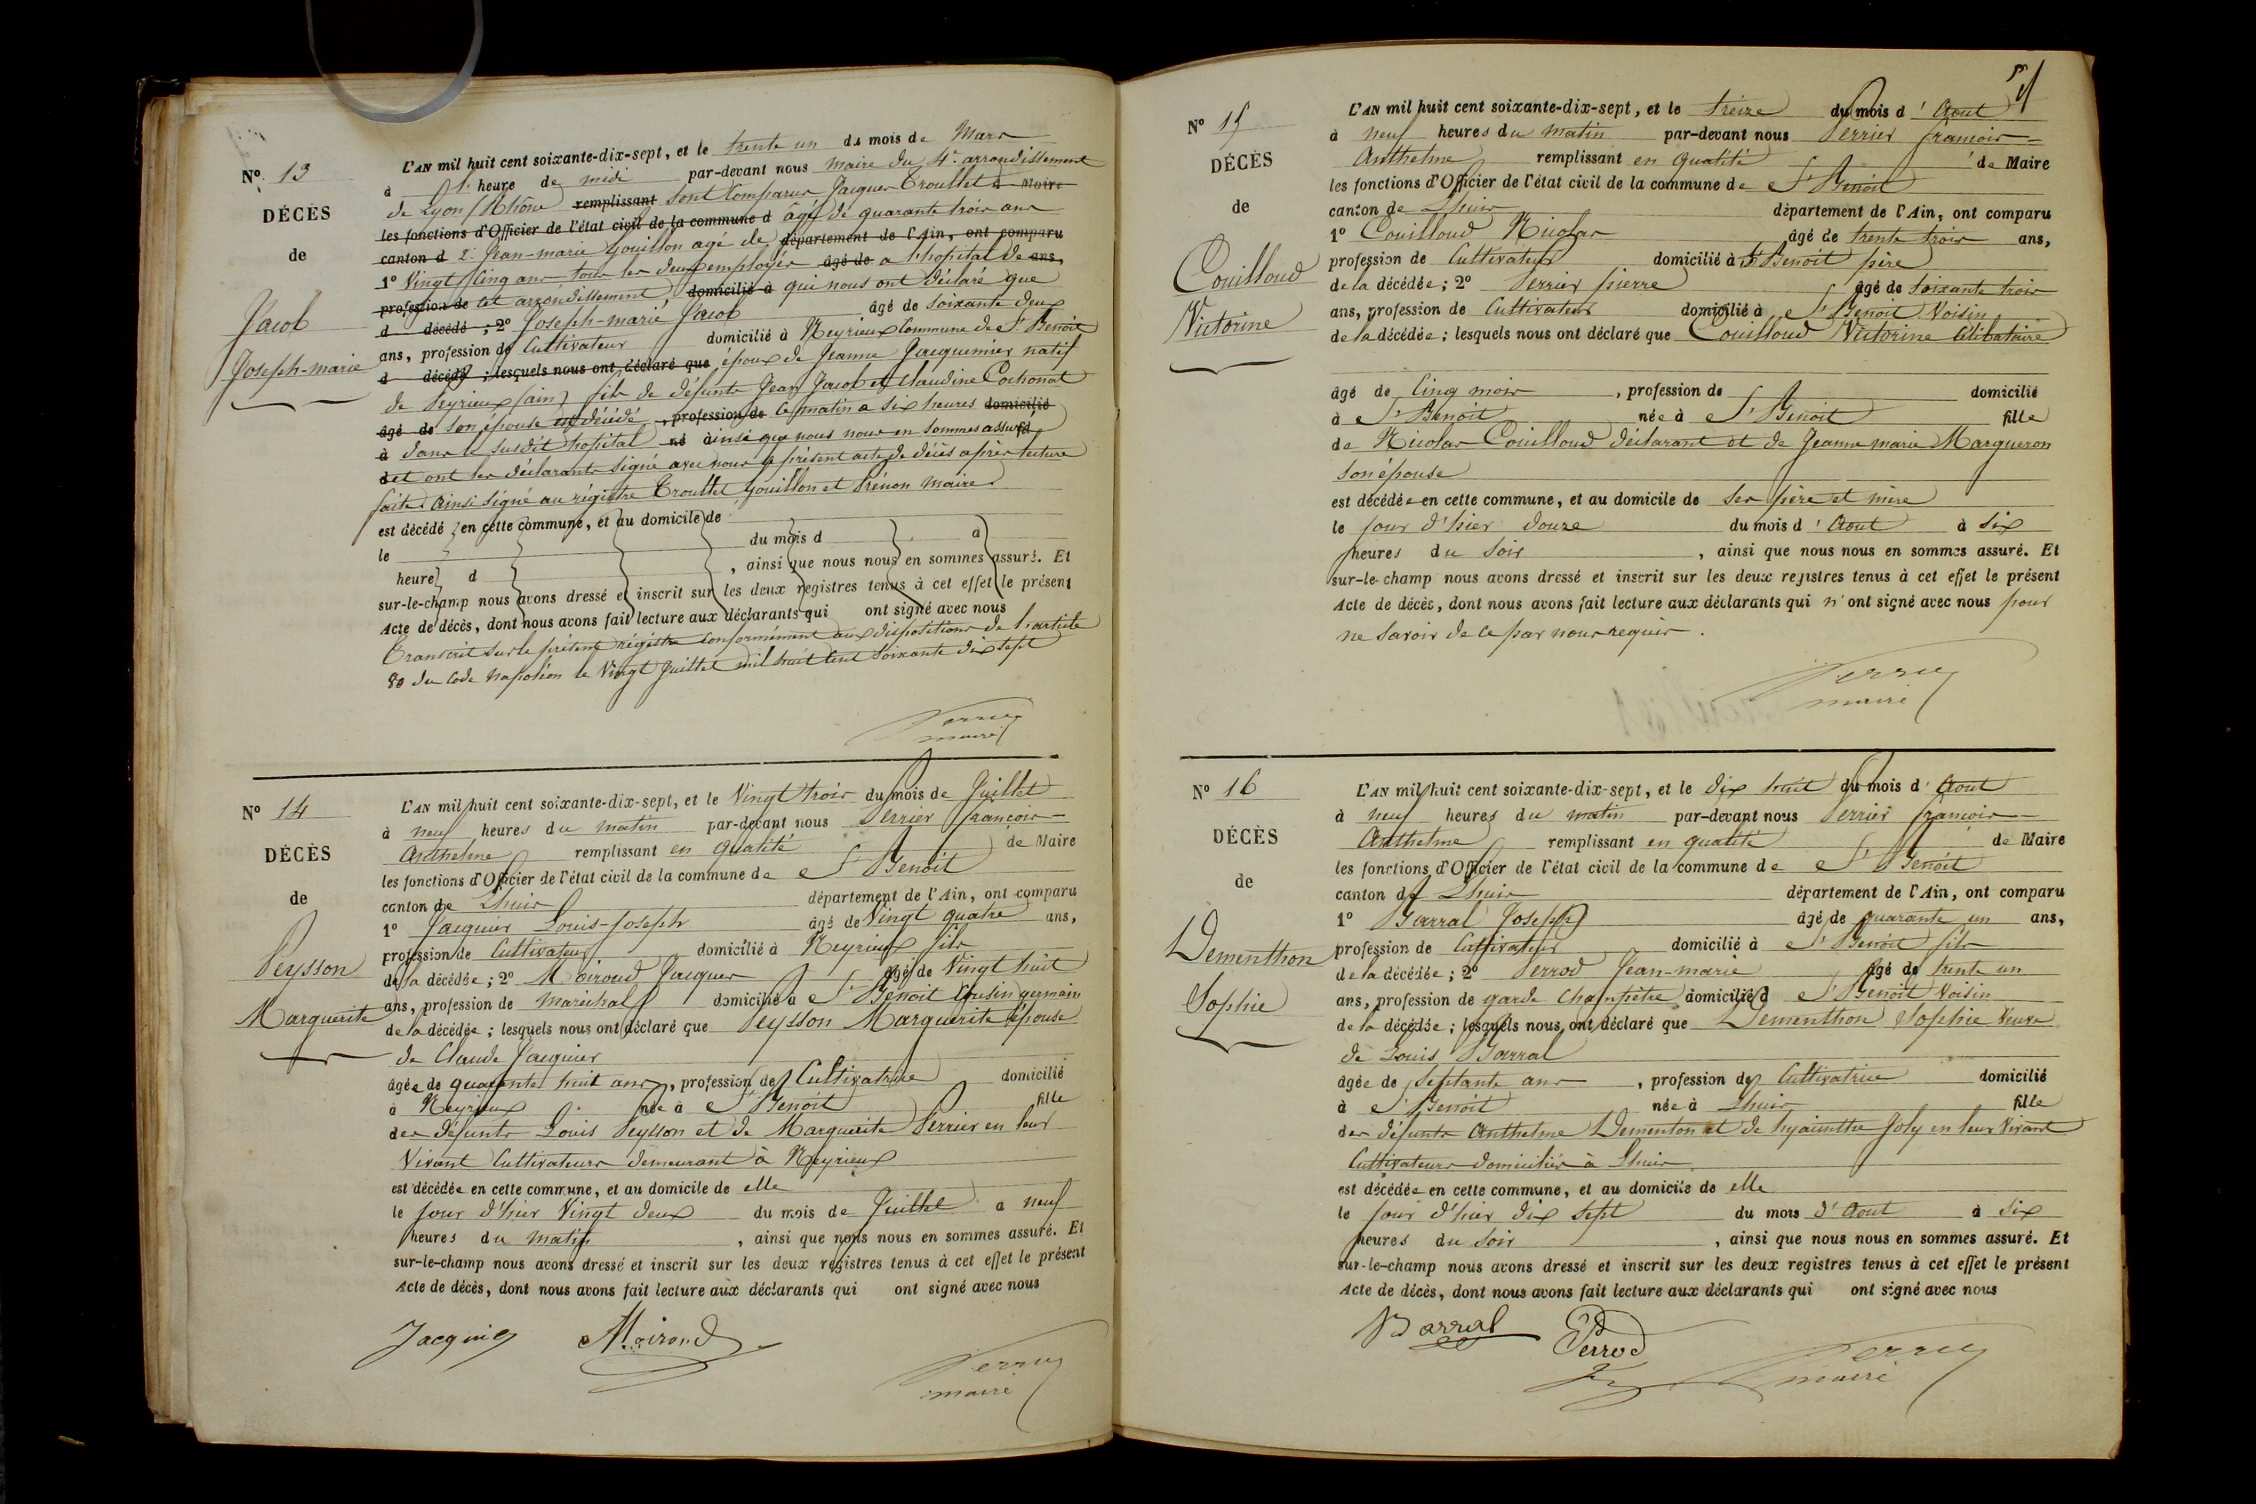 Nº 13
DÉCÈS
de
Jacob
Joseph-marie
L'AN mil huit cent soixante-dix-sept, et le trente un du mois de Mars
à l' heure de midi par-devant nous maire du 4e arrondissement
de Lyon (Rhône remplissant sont Comparus Jacques Troullet d Maire
les fonctions d'Officier de l'état civil de la commune d âgé de quarante trois ans
canton d 2º Jean-marie Gouillon agé de département de l'Ain, ont comparu
1º Vingt Cinq ans tous les deux employés âgé de a l'hopital de ans,
profession de cet arrondissement, domicilié à qui nous ont déclaré que
d décédé ; 2º Joseph-marie Jacob âgé de soixante deux
ans, profession de Cultivateur domicilié à Neyrieux Commune de St Benoit
d décédé ; lesquels nous ont déclaré que époux de Jeanne Jacquemier natif
de Peyrieux (ain) fils de défunts Jean Jacob et Claudine Cochonat
âgé de son épouse est décédé , profession de Ce matin a six heures domicilié
à dans le susdit hopital né ainsi que nous nous en sommes assuré
d et ont les déclarants signé avec nous le présent acte de décès après lecture
faite. Ainsi signé au régistre Troullet Gouillon et maire.
est décédé en cette commune, et au domicile de
le du mois d a
heure d , ainsi que nous nous en sommes assuré. Et
sur-le-champ nous avons dressé et inscrit sur les deux registres tenus à cet effet le présent
Acte de décès, dont nous avons fait lecture aux déclarants qui ont signé avec nous
Transcrit sur le présent régistre conformément aux dispositions de l'article
80 du Code Napoléon le Vingt Juillet mil huit Cent soixante dix sept
Perrier
maire
Nº 14
DÉCÈS
de
Peysson
Marguerite
L'AN mil huit cent soixante-dix-sept, et le Vingt trois du mois de Juillet
à neuf heures du matin par-devant nous Perrier françois
Anthelme remplissant en qualité de Maire
les fonctions d'Officier de l'état civil de la commune de St Benoit
canton de Lhuis département de l'Ain, ont comparu
1º Jacquier Louis-Joseph âgé de Vingt quatre ans,
profession de Cultivateur domicilié à Neyrieux fils
de la décédée ; 2º Moiroud Jacques âgé de Vingt huit
ans, profession de maréchal domicilié à St Benoit Cousin germain
de la décédée ; lesquels nous ont déclaré que Peysson Marguerite épouse
de Claude Jacquier
âgée de quarante huit ans , profession de Cultivatrice domicilié
à Neyrieux née à St Benoit fille
des défunts Louis Peysson et de Marguerite Perrier en leur
Vivant Cultivateurs demeurant à Neyrieux
est décédée en cette commune, et au domicile de elle
le jour d'hier Vingt deux du mois de Juillet a neuf
heures du matin , ainsi que nous nous en sommes assuré. Et
sur-le-champ nous avons dressé et inscrit sur les deux registres tenus à cet effet le présent
Acte de décès, dont nous avons fait lecture aux déclarants qui ont signé avec nous
Jacquier Moiroud
Perrier
maire
51
Nº 15
DÉCÈS
de
Couilloud
Victorine
L'AN mil huit cent soixante-dix-sept, et le treize du mois d' Aout
à neuf heures du matin par-devant nous Perrier françois
Anthelme remplissant en qualité de Maire
les fonctions d'Officier de l'état civil de la commune de St Benoit
canton de Lhuis département de l'Ain, ont comparu
1º Couilloud Nicolas âgé de trente trois ans,
profession de Cultivateur domicilié à St Benoit père
de la décédée ; 2º Perrier pierre âgé de soixante trois
ans, profession de Cultivateur domicilié à St Benoit Voisin
de la décédée ; lesquels nous ont déclaré que Couilloud Victorine Célibataire
âgé de Cinq mois , profession de domicilié
à St Benoit née à St Benoit fille
de Nicolas Couilloud déclarant et de Jeanne marie Marqueron
son épouse
est décédée en cette commune, et au domicile de ses père et mère
le jour d'hier douze du mois d' Aout à six
heures du soir , ainsi que nous nous en sommes assuré. Et
sur-le-champ nous avons dressé et inscrit sur les deux registres tenus à cet effet le présent
Acte de décès, dont nous avons fait lecture aux déclarants qui n' ont signé avec nous pour
ne savoir de ce par nous requis.
Perrier
maire
Nº 16
DÉCÈS
de
Dementhon
Sophie
L'AN mil huit cent soixante-dix-sept, et le dix huit du mois d' Aout
à neuf heures du matin par-devant nous Perrier françois
Anthelme remplissant en qualité de Maire
les fonctions d'Officier de l'état civil de la commune de St Benoit
canton de Lhuis département de l'Ain, ont comparu
1º Barral Joseph âgé de quarante un ans,
profession de Cultivateur domicilié à St Benoit fils
de la décédée ; 2º Perrod Jean-marie âgé de trente un
ans, profession de garde Champêtre domicilié à St Benoit Voisin
de la décédée ; lesquels nous ont déclaré que Dementhon Sophie Veuve
de Louis Barral
âgée de septante ans , profession de Cultivatrice domicilié
à St Benoit née à Lhuis fille
des défunts Anthelme Dementon et de hyacinthe Joly en leur Vivant
Cultivateurs domiciliés à Lhuis
est décédée en cette commune, et au domicile de elle
le jour d'hier dix sept du mois d'Aout à six
heures du soir , ainsi que nous nous en sommes assuré. Et
sur-le-champ nous avons dressé et inscrit sur les deux registres tenus à cet effet le présent
Acte de décès, dont nous avons fait lecture aux déclarants qui ont signé avec nous
Barral Perrod
Perrier
maire